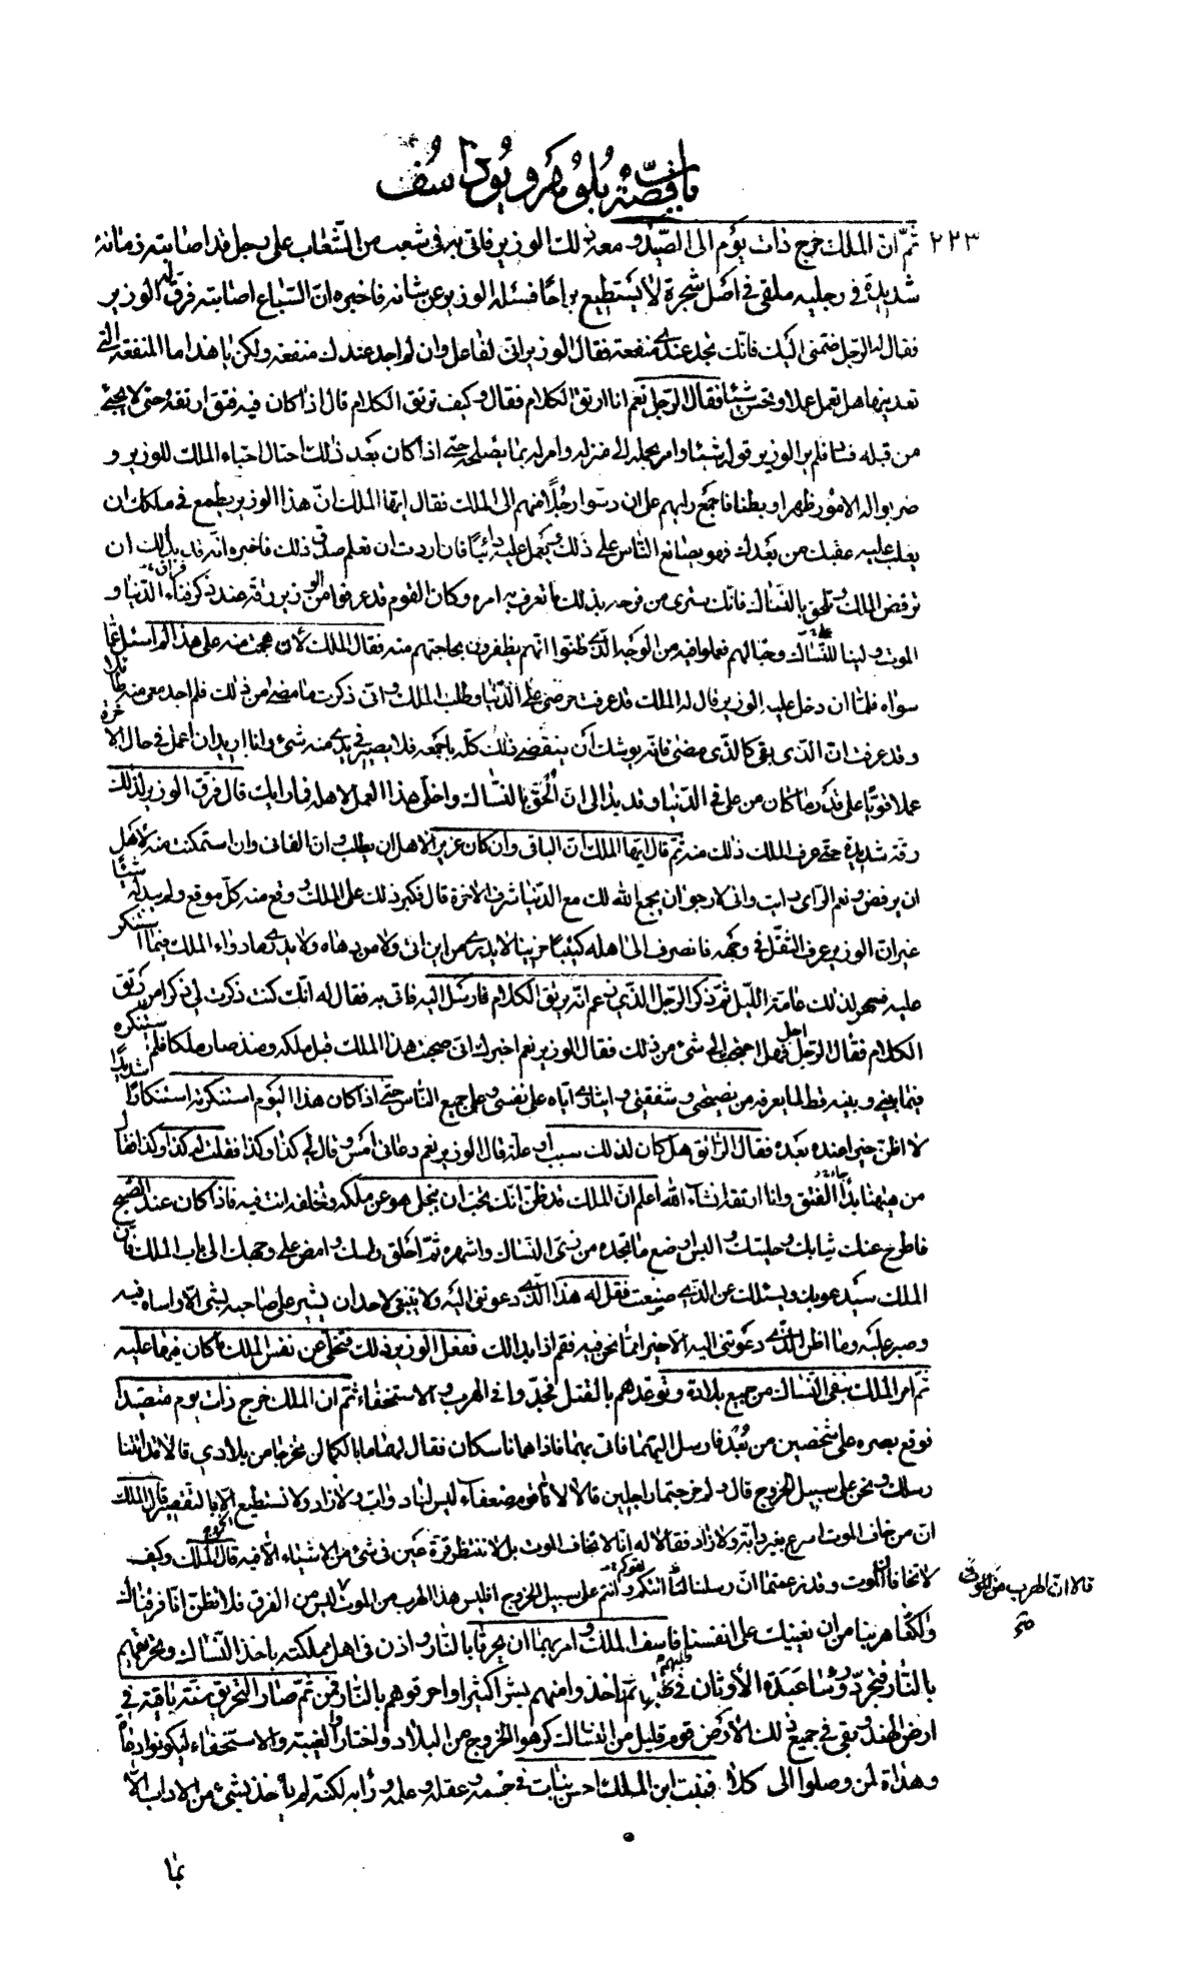 باب قصّة بلوهر ويوذاسف
٢٢٣ ثمّ انّ الملك خرج ذات يوم الى الصّيد ومعه ذلك الوزير فاتى به في شعب من الشّعاب على رجل قد اصابته زمانة
شديدة في رجليه ملقى في اصل شجرة لا يستطيع براحا فسئله الوزير عن شانه فاخبره انّ السّباع اصابته فرقّ له الوزير
فقال له الرجل ضمّنى اليك فانّك تجد عندى منفعة فقال الوزير انى لفاعل وان لم اجد عندك منفعة ولكن يا هذا ما المنفعة التي
تعدنيها هل تعمل عملا او تحسن شيئا فقال الرّجل نعم انا ارتق الكلام فقال وكيف ترتق الكلام قال اذا كان فيه فتق ارتقه حتى لا يجئ
من قبله فساد فلم ير الوزير قوله شيئا وامر بحمله الى منزله وامر له بما يصلحه حتى اذا كان بعد ذلك احتال احبّاء الملك للوزير و
ضربوا له الامور ظهرا وبطنا فاجمع رايهم على ان دسّوا رجلا منهم الى الملك فقال ايها الملك انّ هذا الوزير يطمع في ملكك ان
يغلب عليه عقبك من بعدك فهو يصانع الناس على ذلك ويعمل عليه دائبا فان اردت ان تعلم صدق ذلك فاخبره انّه قد بدا لك ان
ترفض الملك وتلحق بالنّسّاك فانّك سترى من فرحه بذلك ما تعرف به امره وكان القوم قد عرفوا من الوزير رقة عند ذكر فناء الدّنيا و
الموت ولينا للنّسّاك وحبّا لهم فعملوا فيه من الوجه الّذى ظنّوا انهم يظفرون بحاجتهم منه فقال الملك لان هجمت منه على هذا لم اسئل عمّا
سواه فلمّا ان دخل عليه الوزير قال له الملك قد عرفت حرصى على الدّنيا وطلب الملك وانى ذكرت ما مضى من ذلك فلم اجد معى منه طائلا
وقد عرفت انّ الذى بقى كالذى مضى فانه يوشك ان ينقضى ذلك كله باجمعه فلا يصير في يدى منه شئ وانا اريد ان اعمل في حال الاخرة
عملا قويّا على قدر ما كان من عملى في الدّنيا وقد بدا لى ان الحق بالنّسّاك واخلّى هذا العمل لاهله فما رايك قال فرقّ الوزير لذلك
رقة شديدة حتى عرف الملك ذلك منه ثم قال ايّها الملك انّ الباقى وان كان عزيزا لاهل ان يطلب وان الفانى وان استمكنت منه لاهل
ان يرفض ونعم الراى رايت وانى لارجو ان يجمع الله لك مع الدّنيا شرف الاخرة قال فكبر ذلك على الملك ووقع منه كلّ موقع ولم يبد له شيئا
غير انّ الوزير عرف الثقل في وجهه فانصرف الى اهله كئيبا حزينا لا يدرى من اين اتى ولا من دهاه ولا يدرى ما دواء الملك فيما استنكر
عليه فسهر لذلك عامّة اللّيل ثمّ ذكر الرّجل الذى زعم انّه يرتق الكلام فارسل اليه فاتى به فقال له انّك كنت ذكرت لى ذكرا من رتق
الكلام فقال الرّجل اجل فهل احتجت الى شئ من ذلك فقال الوزير نعم اخبرك انى صحبت هذا الملك قبل ملكه ومنذ صار ملكا فلم استنكره
فيما بينى وبينه قط لما يعرفه من نصيحتى وشفقتى وايثارى اياه على نفسى وعلى جميع النّاس حتى اذا كان هذا اليوم استنكرته استنكارا شديدا
لا اظنّ خيرا عنده بعده فقال الرّاتق هل كان لذلك سبب او علّة قال الوزير نعم دعانى امس وقال لى كذا وكذا فقلت له كذا وكذا فقال
من هيهنا جاء الفتق وانا ارتقه انشاء الله اعلم انّ الملك قد ظنّ انّك تحبّ ان يتخلى هو عن ملكه وتخلفه انت فيه فاذا كان عند الصّبح
فاطرح عنك ثيابك وحليتك والبس اوضع ما تجده من زىّ النّسّاك واشهره ثمّ احلق راسك وامض على وجهك الى باب الملك فانّ
الملك سيدعو بك ويسئلك عن الذى صنعت فقل له هذا الّذى دعوتنى اليه ولا ينبغى لاحد ان يشير على صاحبه بشئ الاّ واساه فيه
وصبر عليه وما اظنّ الّذى دعوتنى اليه الاّ خيرا ممّا نحن فيه فقم اذا بدا لك ففعل الوزير ذلك فتخلّى عن نفس الملك ما كان فيها عليه
ثمّ امر الملك بنفى النّسّاك من جميع بلاده وتوعّدهم بالقتل فجدّوا في الهرب والاستخفاء ثمّ انّ الملك خرج ذات يوم متصيّدا
فوقع بصره على شخصين من بُعد فارسل اليهما فاتى بهما فاذا هما ناسكان فقال لهما ما بالكما لن تخرجا من بلادى قالا قد اتتنا
رسلك ونحن على سبيل الخروج قال ولم خرجتما راجلين قالا لانّا قوم ضعفاء ليس لنا دوابّ ولا زاد ولا نستطيع الخروج الا بالتقصير قال الملك
انّ من خاف الموت اسرع بغير دابة ولا زاد فقالا له انّا لا نخاف الموت بل لا ننتظر قرة عين في شئ من الاشياء الا فيه قال الملك وكيف
لا تخافان الموت وقد زعمتما انّ رسلنا لمّا اتتكم وانتم على سبيل الخروج افليس هذا الهرب من الموت قالا ان الهرب من الموت ليس من الفرق فلا تظنّ انّا فرقناك
ولكنّا هربنا من ان نعينك على انفسنا فاسف الملك وامر بهما ان يحرقا بالنّار واذن في اهل مملكته باخذ النّسّاك وتحريقهم
بالنّار فتجرّد رؤساء عبدة الأوثان في طلبهم واخذوا منهم بشرا كثيرا واحرقوهم بالنّار فمن ثمّ صار التحريق سنّة باقية في
ارض الهند وبقى في جميع تلك الارض قوم قليل من النّسّاك كرهوا الخروج من البلاد واختاروا الغيبة والاستخفاء ليكونوا دعاة
وهداة لمن وصلوا الى كلامه فنبت ابن الملك احسن نبات في جسمه وعقله وعلمه ورايه لكنّه لم ياخذ بشئ من الاداب الاّ
بما